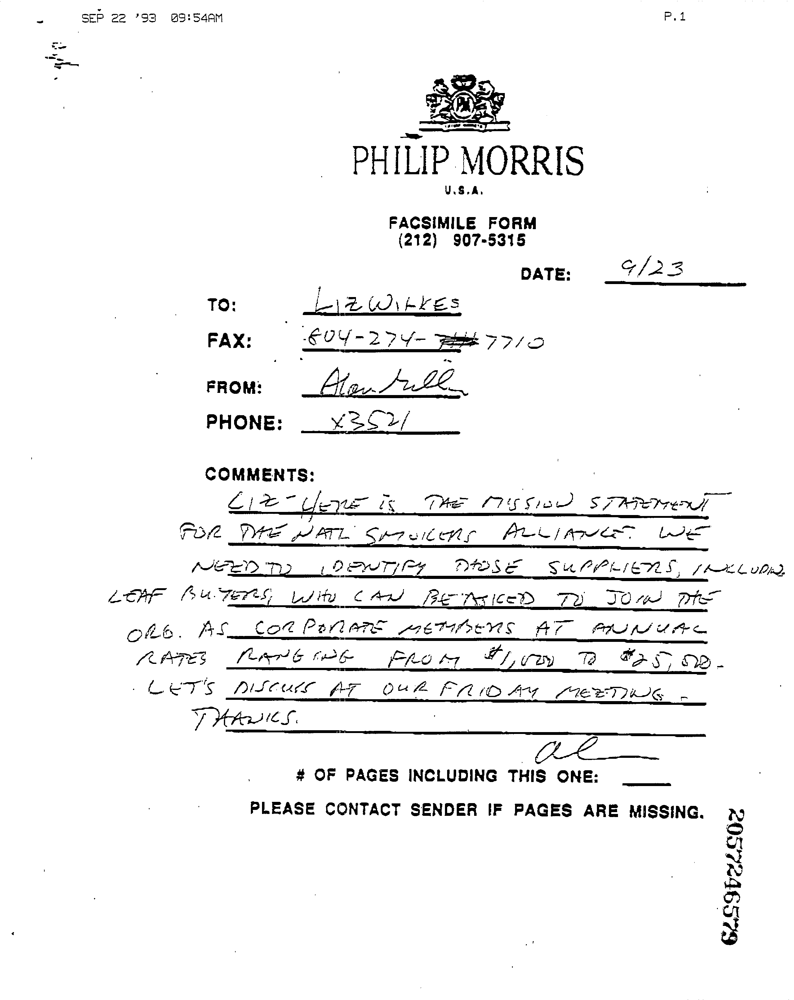 SEP 22 '93 09:54AM P.1
PM
PHILIP MORRIS
U.S.A.
FACSIMILE FORM
(212) 907-5315
DATE: 9/23
TO: LIZ WILKES
FAX: 804-274-7710
FROM: Alan Miller
PHONE: x3521
COMMENTS:
LIZ - HERE IS THE MISSION STATEMENT
FOR THE NATL SMOKERS ALLIANCE. WE
NEED TO IDENTIFY THOSE SUPPLIERS, INCLUDING
LEAF BUYERS, WHO CAN BE ASKED TO JOIN THE
ORG. AS CORPORATE MEMBERS AT ANNUAL
RATES RANGING FROM $1,000 TO $25,000.
LET'S DISCUSS AT OUR FRIDAY MEETING.
THANKS.
al
# OF PAGES INCLUDING THIS ONE:
PLEASE CONTACT SENDER IF PAGES ARE MISSING.
2057246579